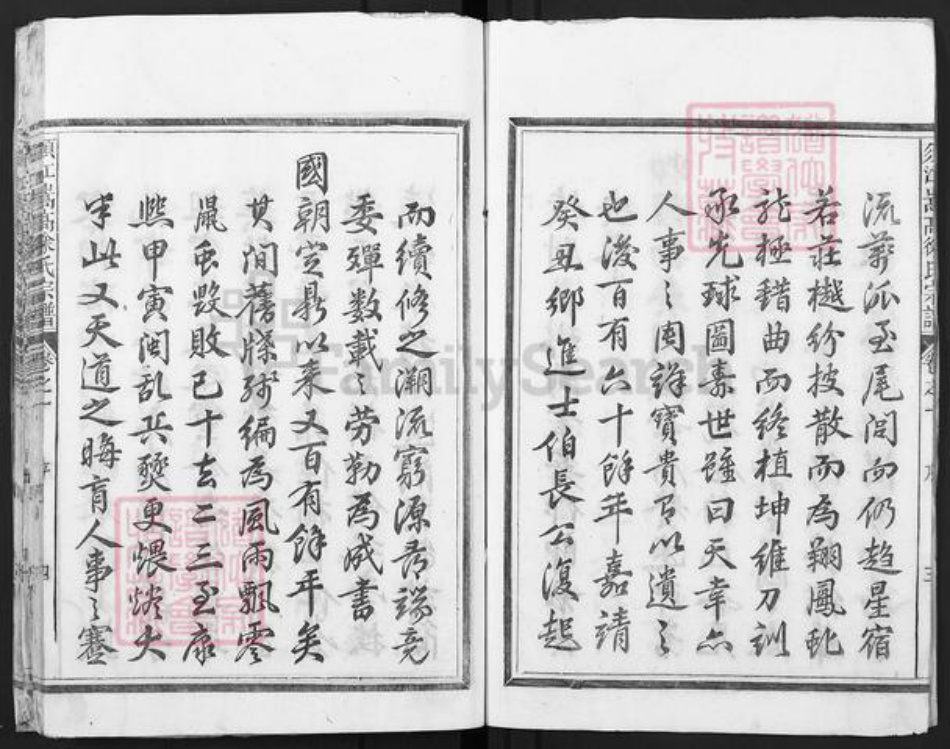 流蒸派至尾閭而仍趨星宿
若莊樾紛披散而為翔鳳虬
龍極錯曲而終植坤維刀訓
承先球圖素世雖曰天幸亦
人事之周詳寶貴有以遺之
也後百有六十餘年嘉靖
癸丑鄉進士伯長公復起
而續修之溯流窮源尋端竟
委殫數載之勞勒為成書
國朝定鼎以來又百有餘年矣
其間舊牒殘編為風雨飄零
鼠虫毀敗已十去二三至康
熙甲寅閩乱兵燹更煨燼大
半此又天道之晦盲人事之蹇
須江嵩高徐氏宗譜
卷之一
序
三
四
FamilySearch